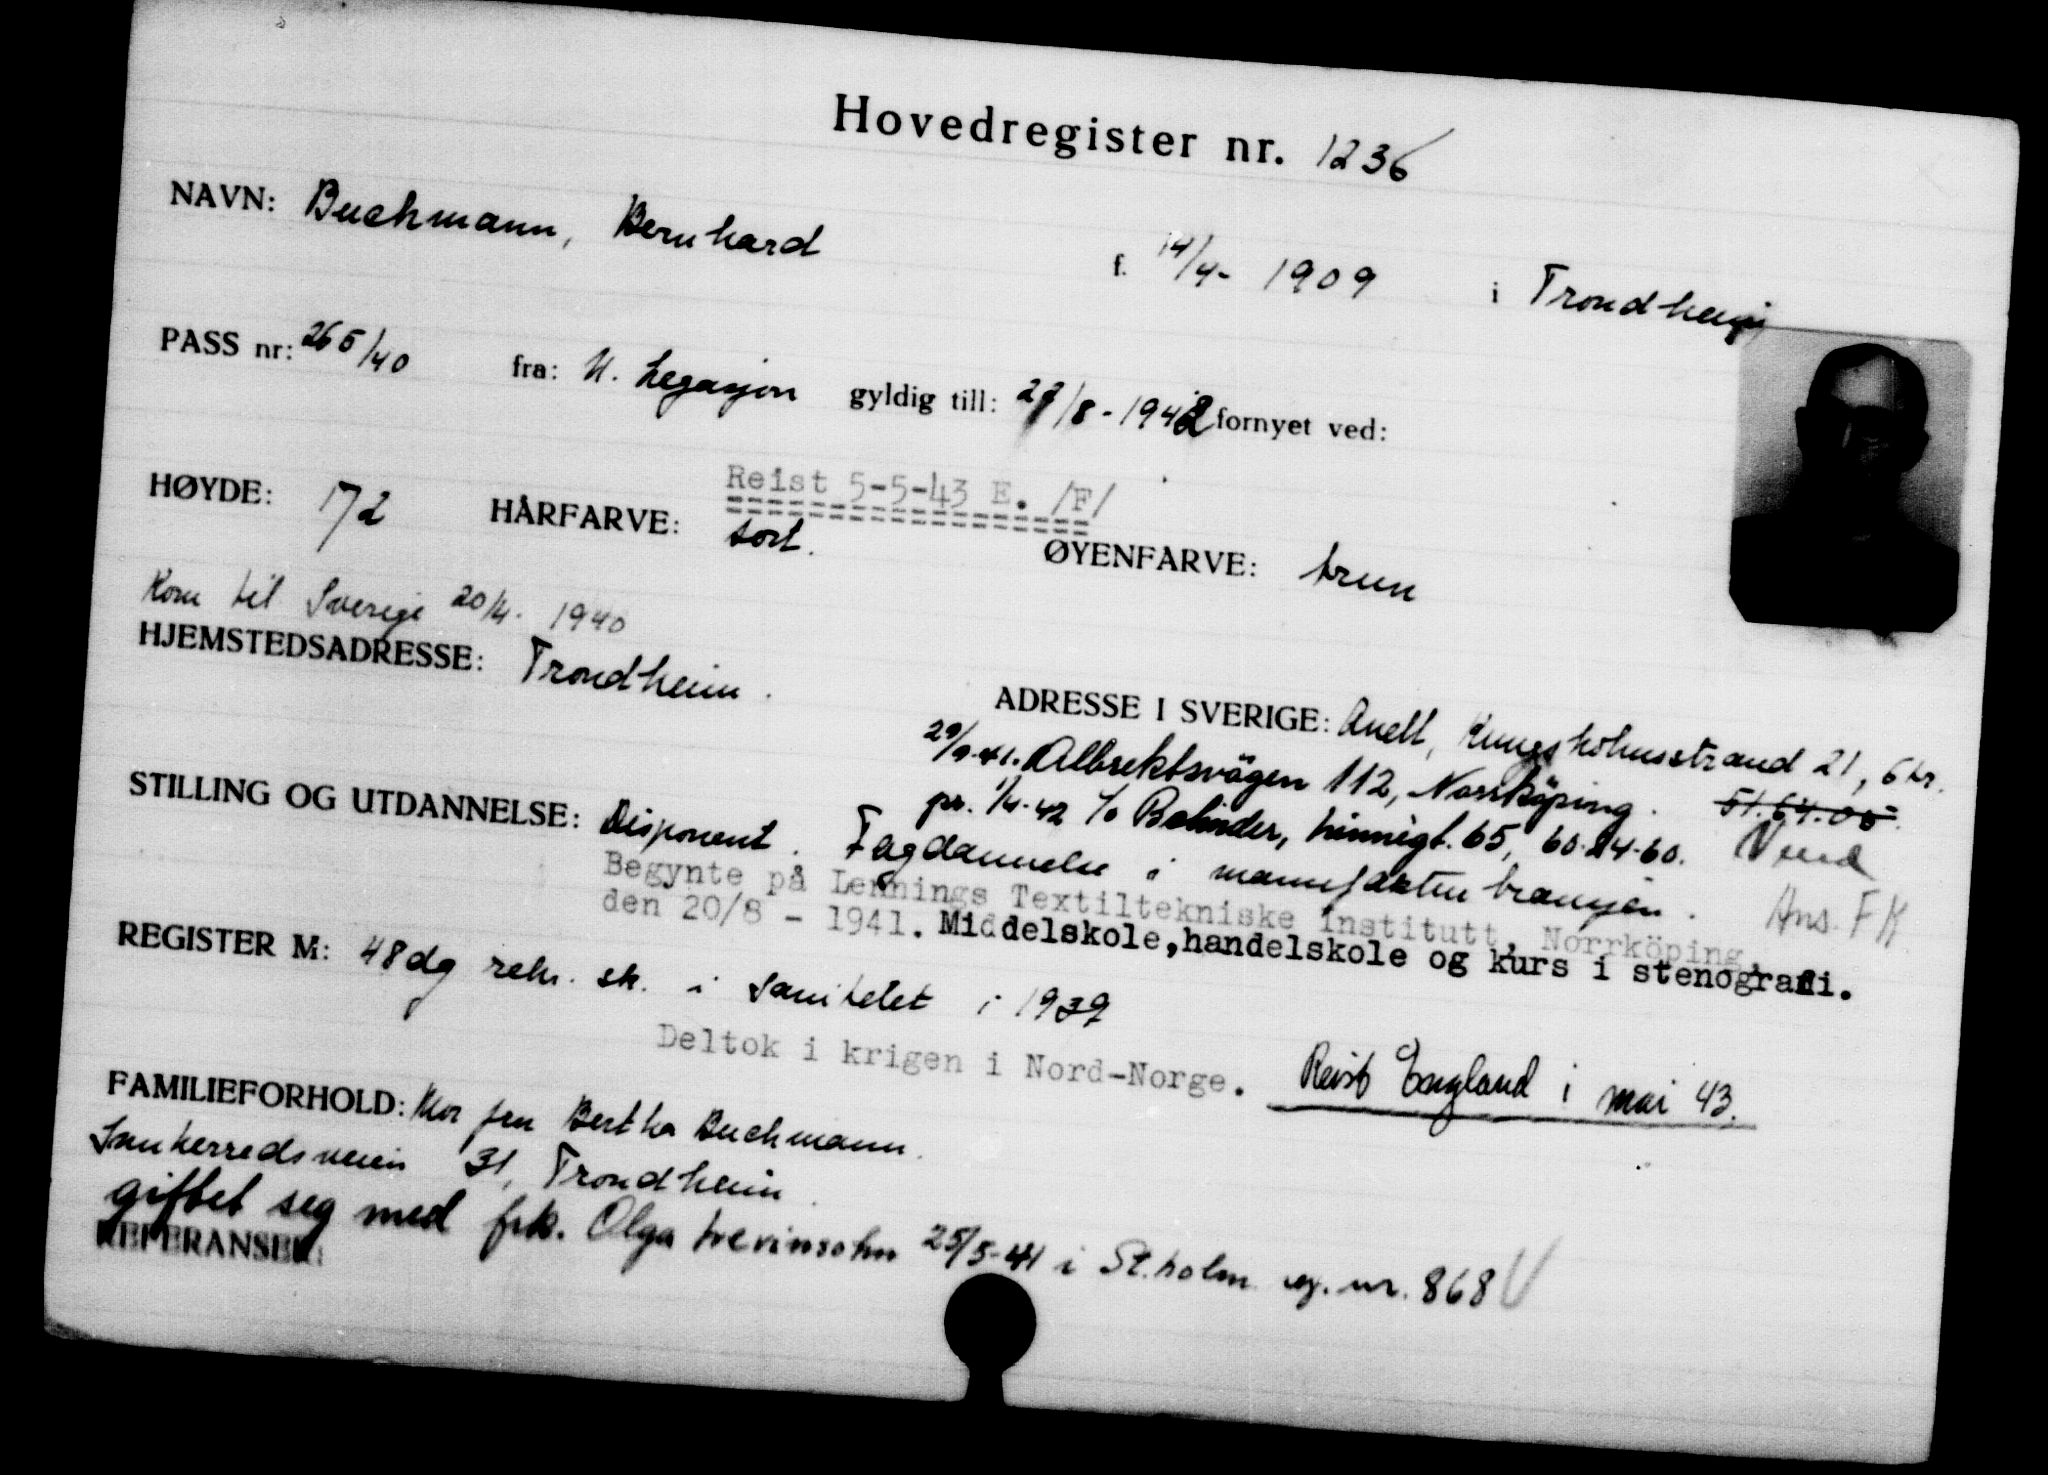 Hovedregister nr. 1236
NAVN: Buchmann, Bernhard f. 14/4- 1909 i Trondheim
PASS nr: 265/40 fra: N. Legasjon gyldig till: 27/8-1942 fornyet ved:
Reist 5-5-43 E. /F/
HØYDE: 172 HÅRFARVE: sort. ØYENFARVE: brun
Kom til Sverige 20/4. 1940
HJEMSTEDSADRESSE: Trondheim.
ADRESSE I SVERIGE: Anell, Kungsholmsstrand 21, 6 tr.
29/9-41. Albrektsvägen 112, Norrköping. 51.64.05.
pr. 1/4-42 c/o Bolinder, 65, 60.24.60.
STILLING OG UTDANNELSE: Disponent. Fagdannelse i manufakturbransjen.
Begynte på Lennings Textiltekniske Institutt, Norrköping,
den 20/8 - 1941. Middelskole, handelskole og kurs i stenografi.
REGISTER M: 48 dg rekr. sk. i Sanitetet i 1939
Deltok i krigen i Nord-Norge. Reist England i mai 43.
FAMILIEFORHOLD: Mor fru Bertha Buchmann.
31, Trondheim.
giftet seg med frk. Olga Levinsohn 25/5-41 i St.holm reg. nr. 868 V
REFERANSER: